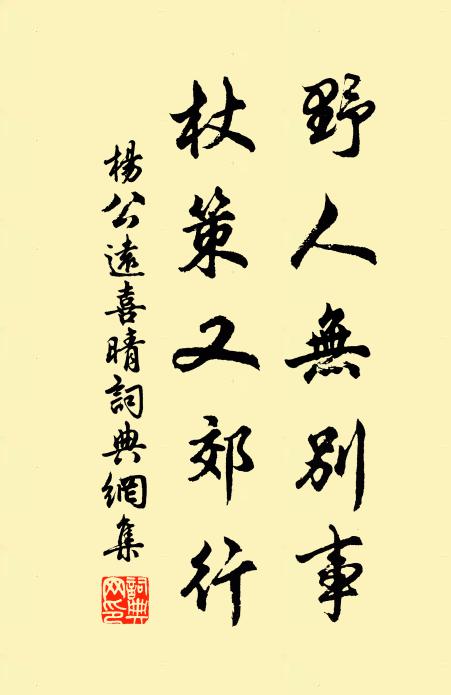 野人無別事
杖策又郊行
楊公遠喜晴詞典網集